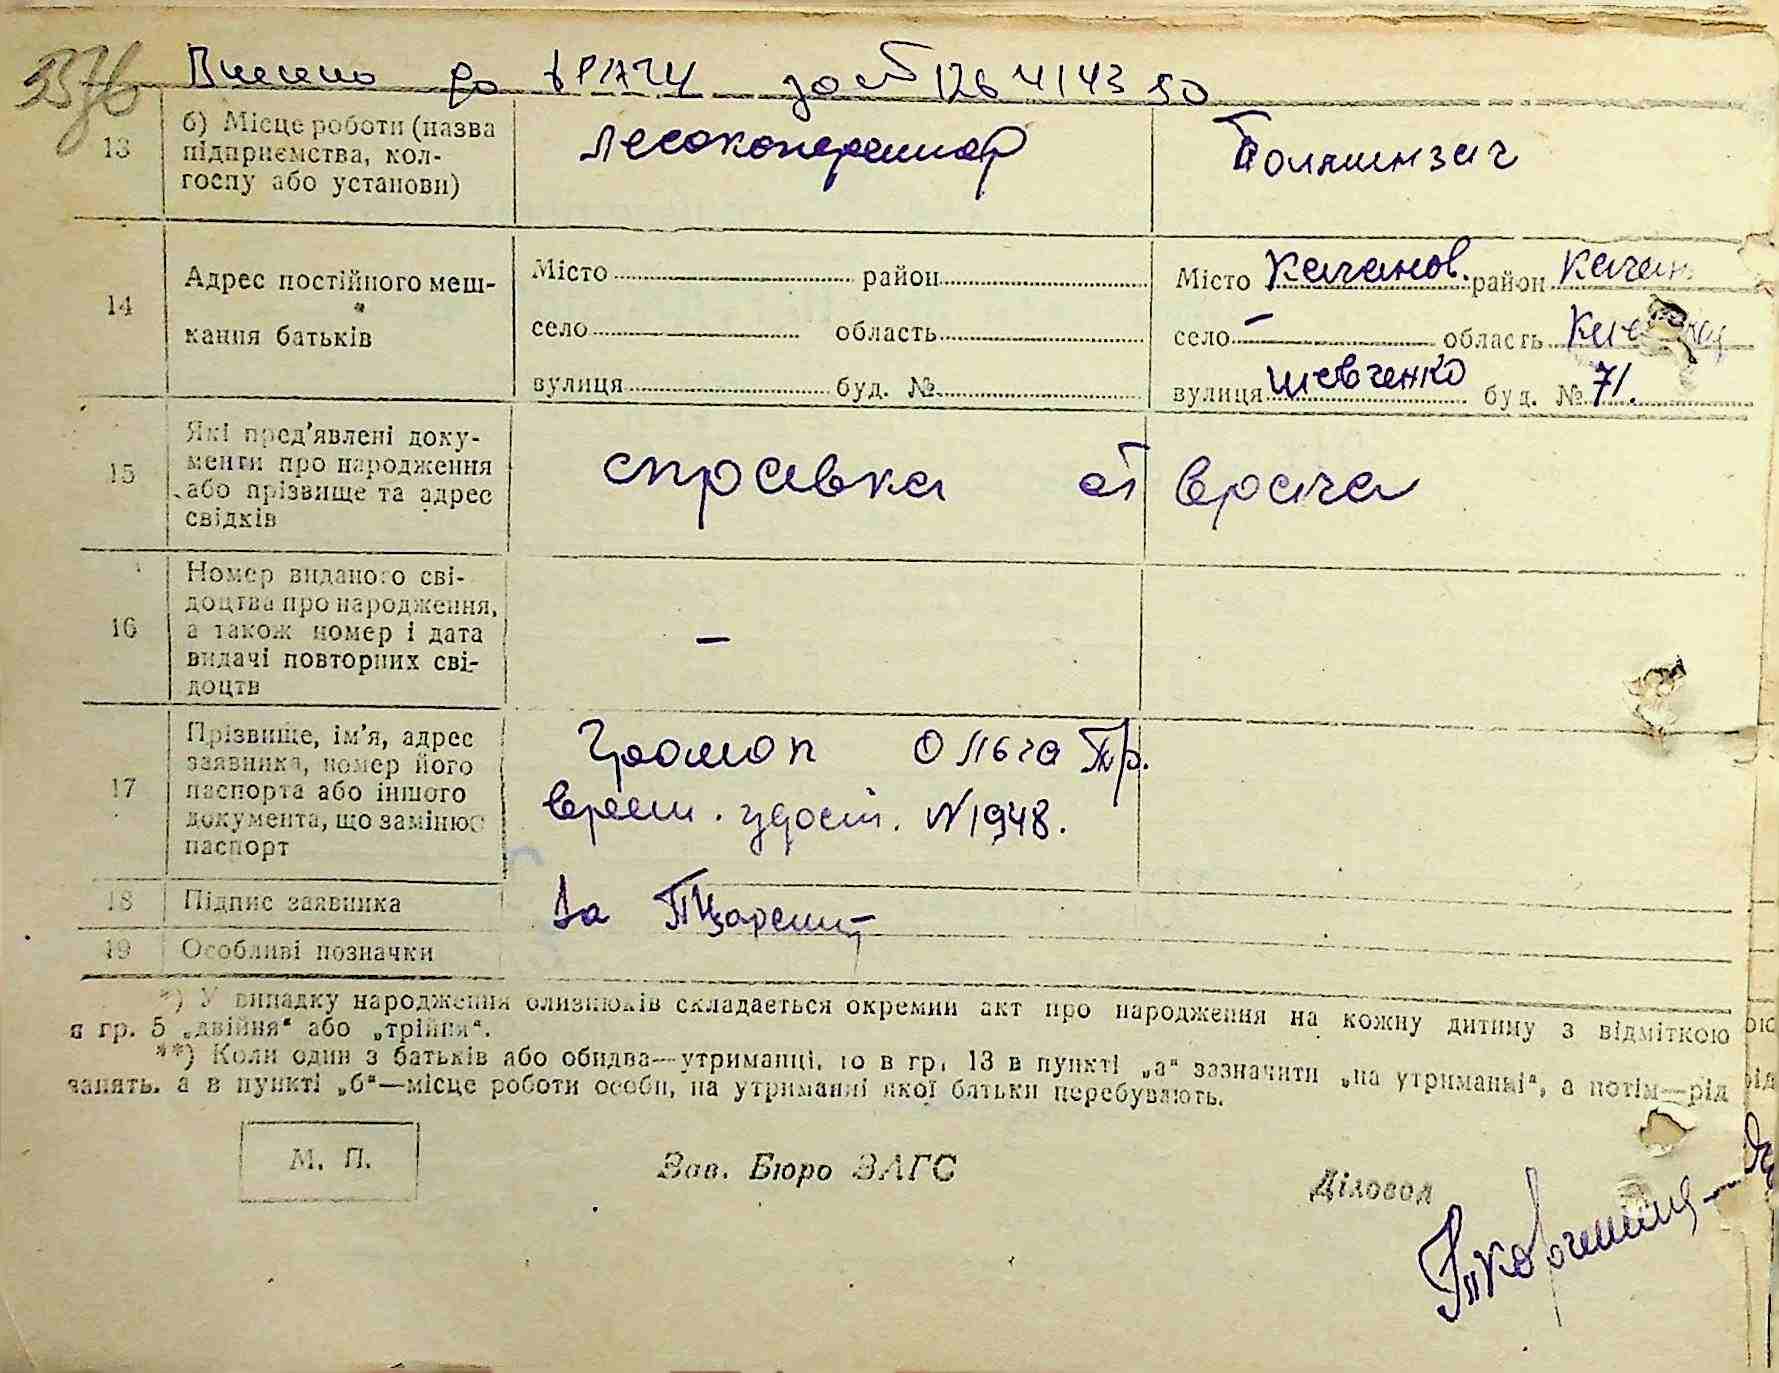 Внесено до ДРАЦС за № 126 4143 50
13 б) Місце роботи (назва підприємства, колгоспу або установи)
14 Адрес постійного мешкання батьків
Місто район
село область
вулиця буд. №
Місто Каганов. район Каган
село – область
вулиця Шевченко буд. № 71.
15 Які пред'явлені документи про народження або прізвище та адрес свідків
справка от врача
16 Номер виданого свідоцтва про народження, а також номер і дата видачі повторних свідоцтв
–
17 Прізвище, ім'я, адрес заявника, номер його паспорта або іншого документа, що замінює паспорт
Ольга
врем. удост. № 1948.
18 Підпис заявника
19 Особливі позначки
*) У випадку народження близнюків складається окремий акт про народження на кожну дитину з відміткою
в гр. 5 „двійня" або „трійня".
**) Коли один з батьків або обидва—утриманці, то в гр. 13 в пункті „а" зазначити „на утриманні", а потім—рід
занять, а в пункті „б"—місце роботи особи, на утриманні якої батьки перебувають.
М. П.
Зав. Бюро ЗАГС
Діловод